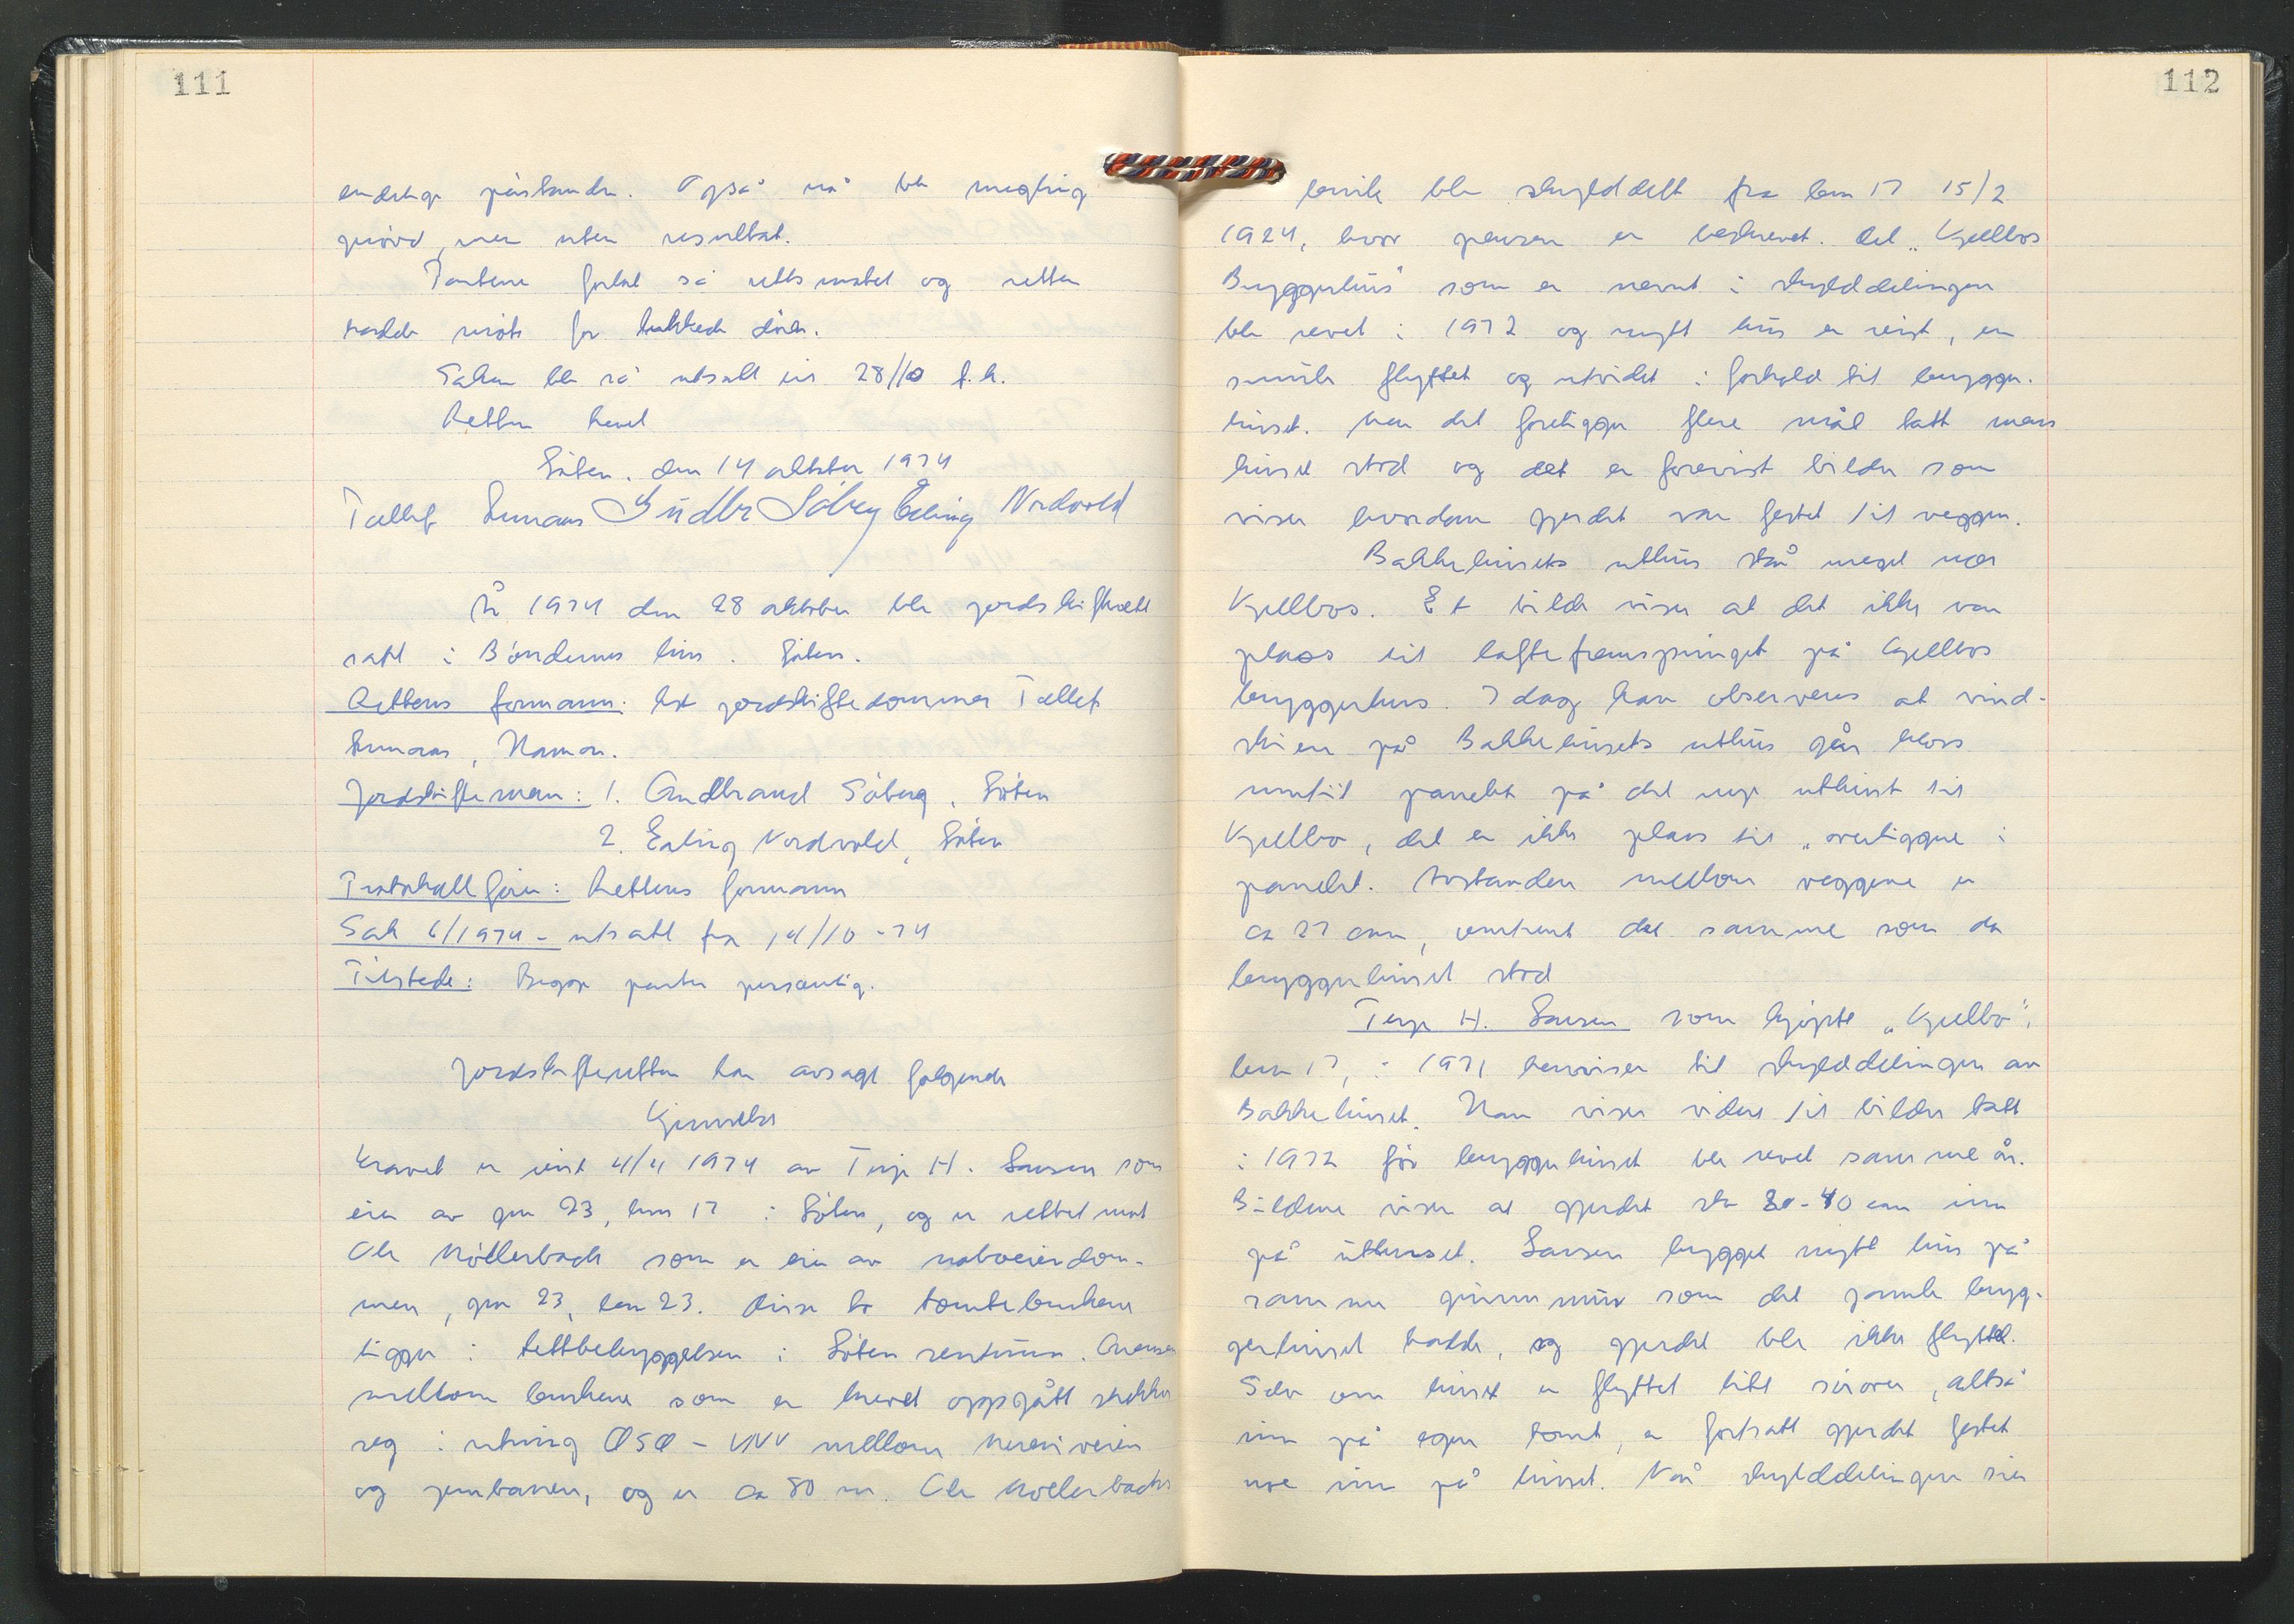 111
endelige påstander. Også nå ble megling
prövd, men uten resultat.
Partene forlot så rettsmøtet og retten
hadde möte for lukkede dörer.
Saken ble så utsatt til 28/10 f.k.
Retten hevet
Löten, den 14 oktober 1974
Tollef Gudbr Söberg Erling Nordvold
År 1974 den 28 oktober ble jordskifterett
satt i Böndernes hus, Löten.
Rettens formann: jordskiftedommer Tollef
Hamar.
Jordskiftemenn: 1. Gudbrand Söberg, Löten
2. Erling Nordvold, Löten
Protokollförer: Rettens formann
Sak 6/1974 - utsatt fra 14/10-74
Tilstede: Begge parter personlig.
Jordskifteretten har avsagt følgende
Kjennelse
Kravet er reist 4/4 1974 av Terje H. Larsen som
eier av gnr 23, bnr 17 i Löten, og er rettet mot
Ole Möllerbach som er eier av naboeiendom-
men, gnr 23, bnr 23. Disse to tomtebrukene
ligger i tettbebyggelsen i Löten sentrum. Grensen
mellom brukene som er krevet oppgått strekker
seg i retning ØSØ - VNV mellom veien
og jernbanen, og er ca 80 m. Ole Möllerbachs
112
bruk ble skylddelt fra bnr 17 15/2
1924, hvor grensen er beskrevet. Det „Kjellbos
Bryggerhus" som er nevnt i skylddelingen
ble revet i 1972 og nytt hus er reist, en
smule flyttet og utvidet i forhold til brygger-
huset. Men det foreligger flere mål tatt mens
huset stod og det er forevist bilder som
viser hvordan gjerdet var festet til veggen.
Bakkehusets uthus står meget nær
Kjellbos. Et bilde viser at det ikke var
plass til laftefremspringet på Kjellbos
bryggerhus. I dag kan observeres at vind-
skien på Bakkehusets uthus går kloss
inntil panelet på det nye uthuset til
Kjellbo, det er ikke plass til „overliggere i
panelet. Avstanden mellom veggene er
ca 27 cm, omtrent det samme som da
bryggerhuset stod
Terje H. Larsen som kjöpte „Kjellbo",
bnr 17, i 1971 henviser til skylddelingen av
Bakkehuset. Han viser videre til bilder tatt
i 1972 för bryggerhuset ble revet samme år.
Bildene viser at gjerdet sto 30-40 cm inn
på uthuset. Larsen bygget nytt hus på
samme grunnmur som det gamle bryg-
gerhuset hadde, og gjerdet ble ikke flyttet.
Selv om huset er flyttet litt sörover, altså
inn på egen tomt, er fortsatt gjerdet festet
noe inn på huset. Når skylddelingen sier